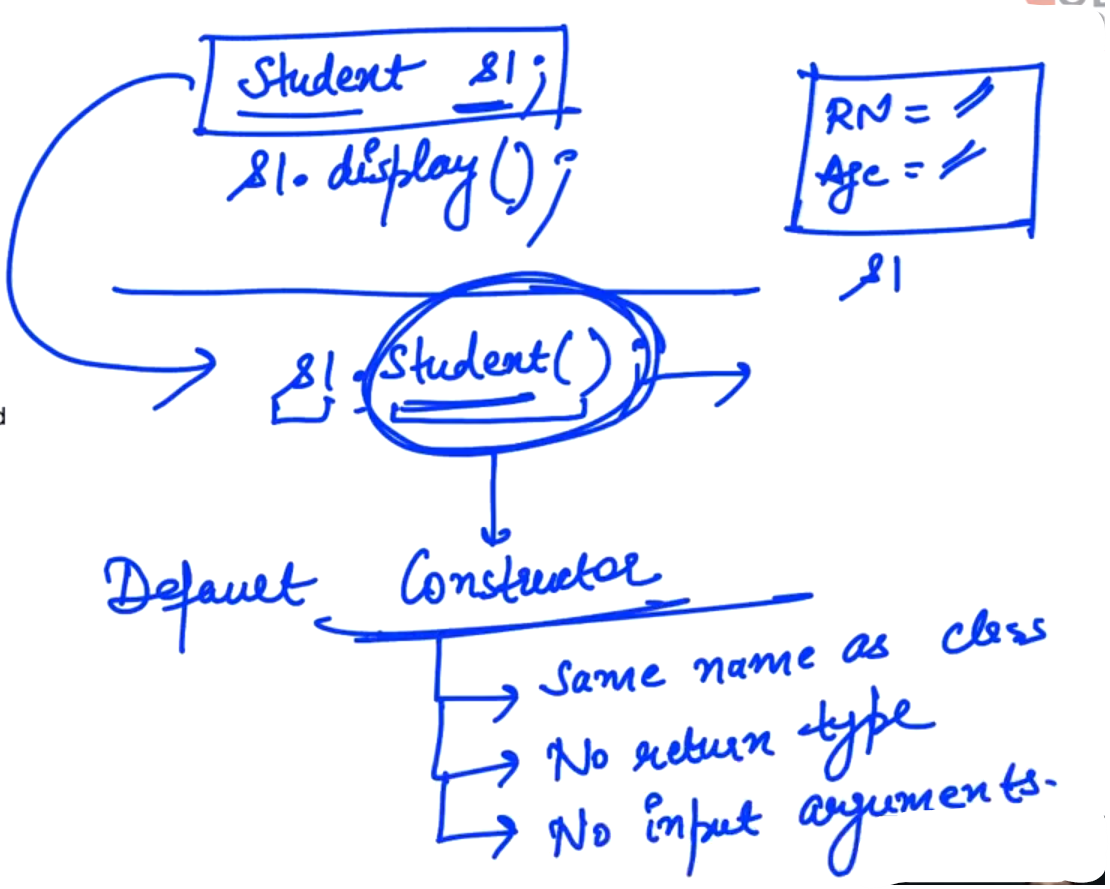 Student s1;
s1.display();
RN =
Age =
s1
s1.Student();
Default Constructor
Same name as class
No return type
No input arguments.